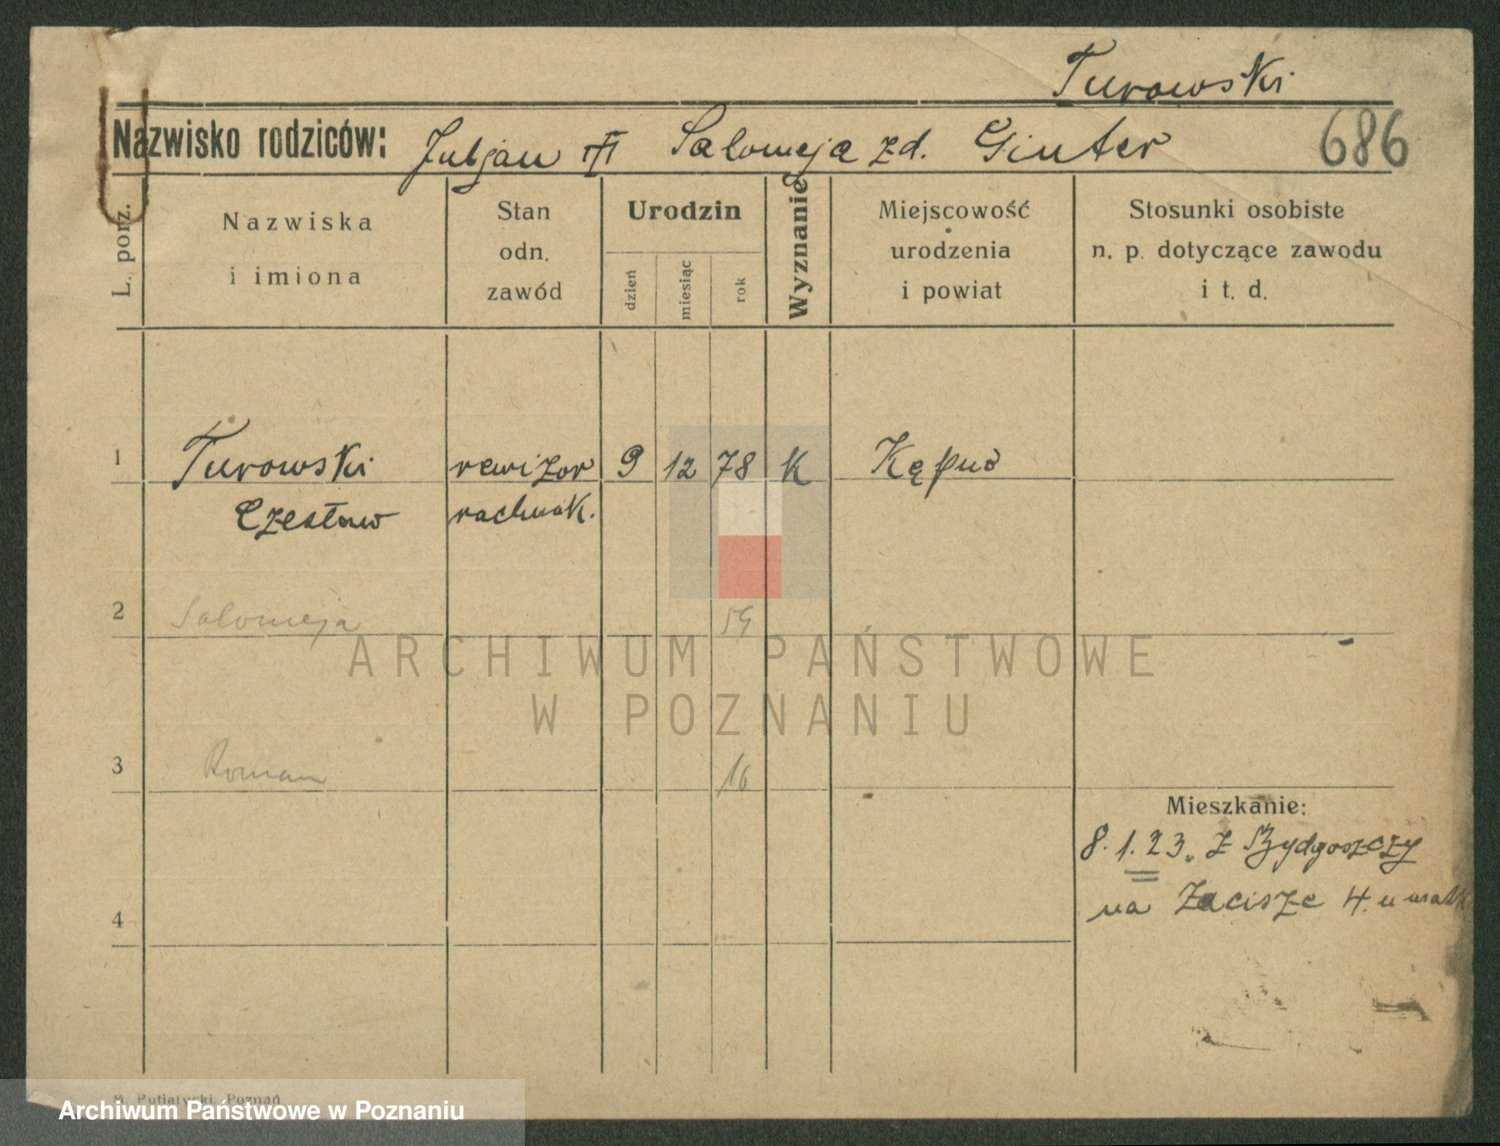 Turowski
Nazwisko rodziców: Juljan Salomeja zd. Ginter
686
L. porz.
Nazwiska
i imiona
Stan
odn.
zawód
Urodzin
dzień
miesiąc
rok
Wyznanie
Miejscowość
urodzenia
i powiat
Stosunki osobiste
n. p. dotyczące zawodu
i t. d.
1 Turowski rewizor 9 12 78 K Kępno
Czesław rachnk.
2 Salomeja 59
ARCHIWUM PAŃSTWOWE
W POZNANIU
3 Roman 16
Mieszkanie:
8.1.23. z Bydgoszczy
na Zacisze 4. u matk
4
M. Putiatycki, Poznań
Archiwum Państwowe w Poznaniu